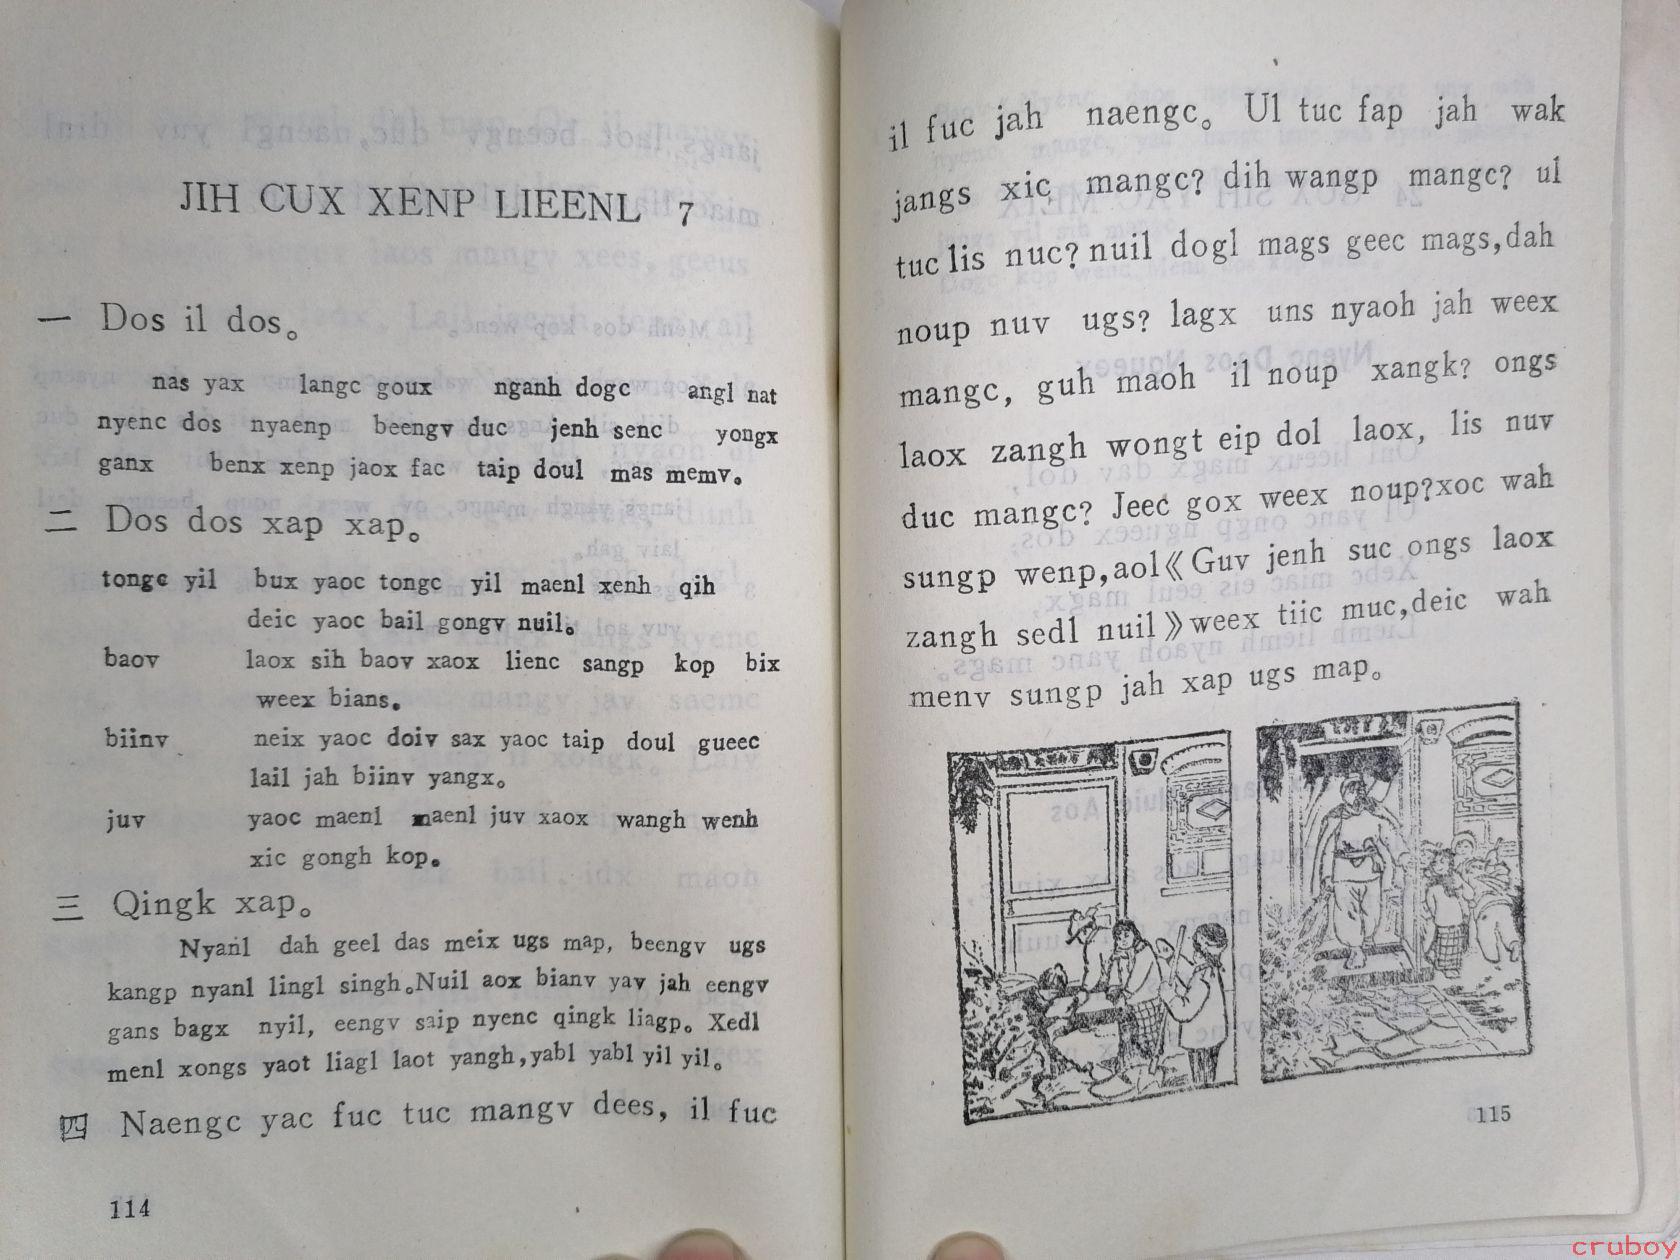 JIH CUX XENP LIEENL 7
一 Dos il dos。
nas yax langc goux nganh dogc angl nat
nyenc dos nyaenp beengv duc jenh senc yongx
ganx benx xenp jaox fac taip doul mas memv。
二 Dos dos xap xap。
tongc yil bux yaoc tongc yil maenl xenh qih
deic yaoc bail gongv nuil。
baov laox sih baov xaox lienc sangp kop bix
weex bians。
biinv neix yaoc doiv sax yaoc taip doul gueec
lail jah biinv yangx。
juv yaoc maenl maenl juv xaox wangh wenh
xic gongh kop。
三 Qingk xap。
Nyanl dah geel das meix ugs map, beengv ugs
kangp nyanl lingl singh。Nuil aox bianv yav jah eengv
gans bagx nyil, eengv saip nyenc qingk liagp。 Xedl
menl xongs yaot liagl laot yangh,yabl yabl yil yil。
四 Naengc yac fuc tuc mangv dees, il fuc
114
il fuc jah naengc。 Ul tuc fap jah wak
jangs xic mangc? dih wangp mangc? ul
tuc lis nuc? nuil dogl mags geec mags,dah
noup nuv ugs? lagx uns nyaoh jah weex
mangc, guh maoh il noup xangk? ongs
laox zangh wongt eip dol laox, lis nuv
duc mangc? Jeec gox weex noup?xoc wah
sungp wenp,aol《Guv jenh suc ongs laox
zangh sedl nuil》weex tiic muc,deic wah
menv sungp jah xap ugs map。
115
cruboy